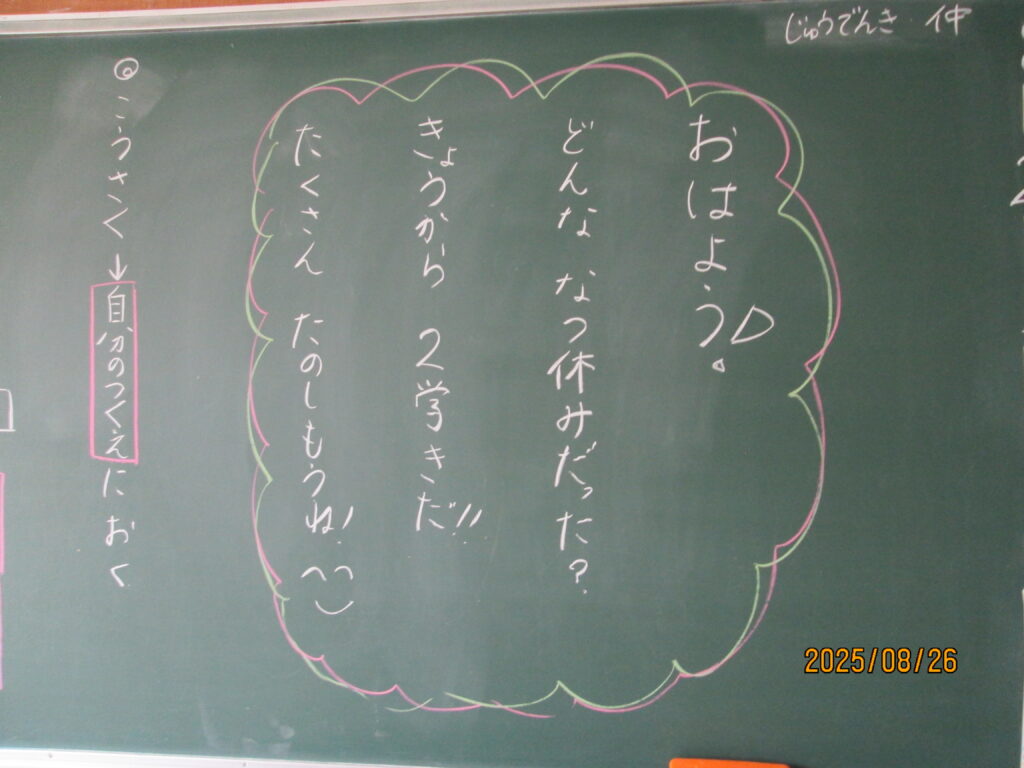 じゅうでんき 仲
おはよう!
どんな なつ休みだった?
きょうから 2学きだ!!
たくさん たのしもうね!
◎こうさく→自分のつくえに おく
2025/08/26